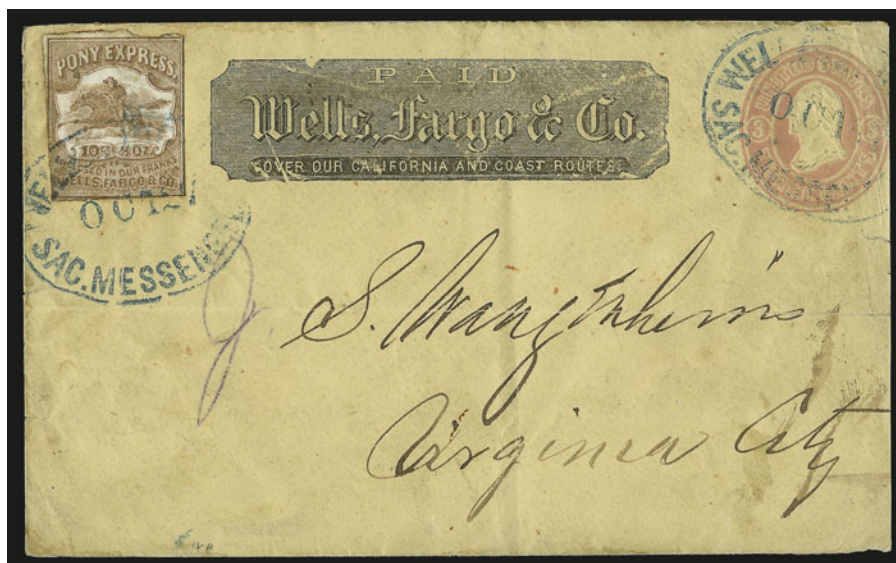 PONY EXPRESS.
10Cts ½ oz.
ENCLOSED IN OUR FRANKS
WELLS, FARGO & CO.
OCT 27
SAC. MESSENGER
PAID
Wells, Fargo & Co.
OVER OUR CALIFORNIA AND COAST ROUTES.
WELLS
OCT
SAC
3
S. Wangenheim
Virginia City